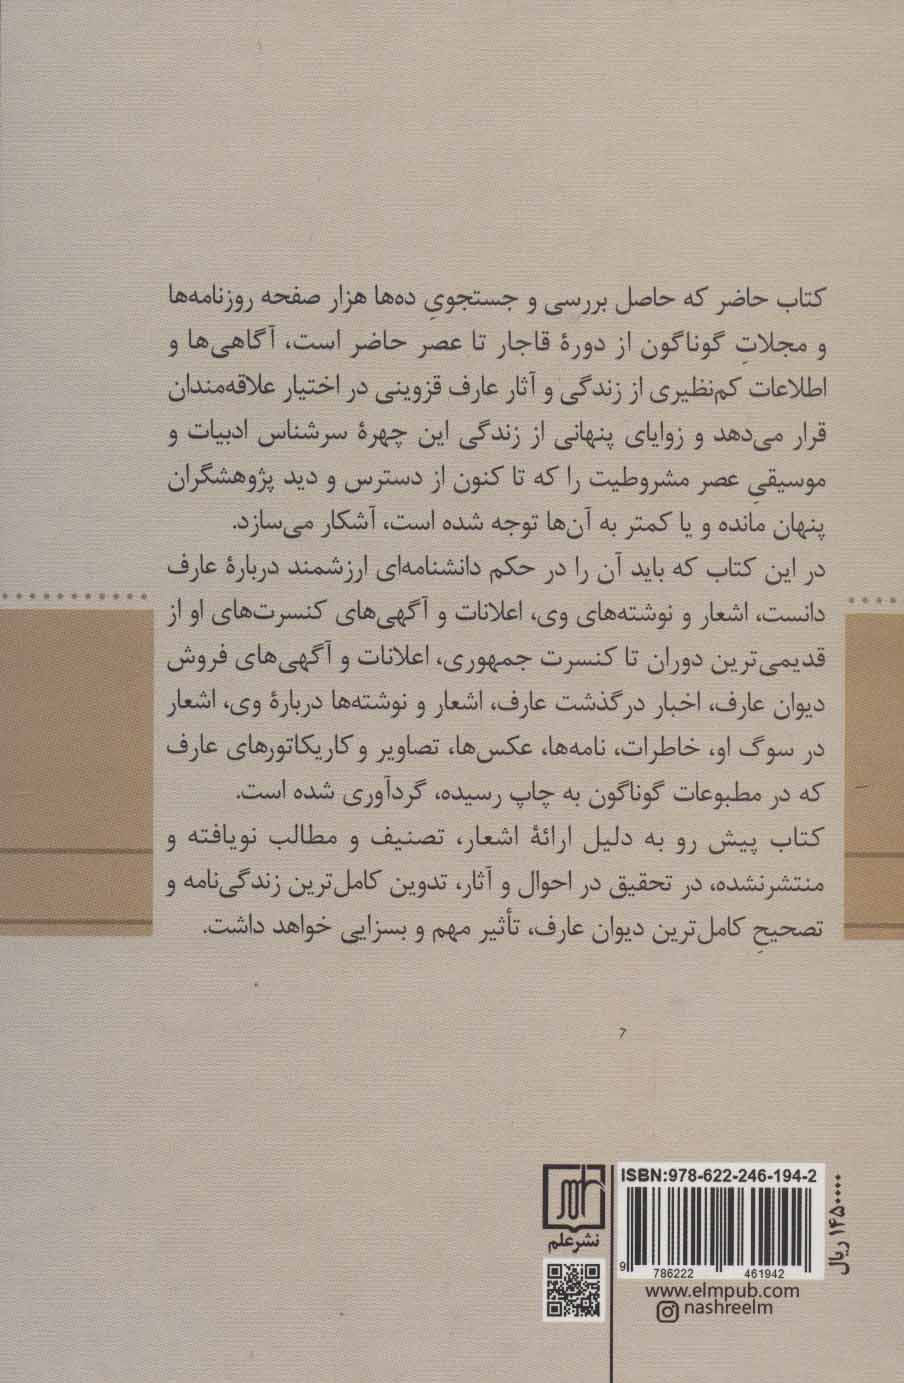 کتاب حاضر که حاصل بررسی و جستجویِ ده‌ها هزار صفحه روزنامه‌ها
و مجلاتِ گوناگون از دورهٔ قاجار تا عصر حاضر است، آگاهی‌ها و
اطلاعات کم‌نظیری از زندگی و آثار عارف قزوینی در اختیار علاقه‌مندان
قرار می‌دهد و زوایای پنهانی از زندگی این چهرهٔ سرشناس ادبیات و
موسیقیِ عصر مشروطیت را که تا کنون از دسترس و دید پژوهشگران
پنهان مانده و یا کمتر به آن‌ها توجه شده است، آشکار می‌سازد.
در این کتاب که باید آن را در حکم دانشنامه‌ای ارزشمند دربارهٔ عارف
دانست، اشعار و نوشته‌های وی، اعلانات و آگهی‌های کنسرت‌های او از
قدیمی‌ترین دوران تا کنسرت جمهوری، اعلانات و آگهی‌های فروش
دیوان عارف، اخبار درگذشت عارف، اشعار و نوشته‌ها دربارهٔ وی، اشعار
در سوگ او، خاطرات، نامه‌ها، عکس‌ها، تصاویر و کاریکاتورهای عارف
که در مطبوعات گوناگون به چاپ رسیده، گردآوری شده است.
کتاب پیش رو به دلیل ارائهٔ اشعار، تصنیف و مطالب نویافته و
منتشرنشده، در تحقیق در احوال و آثار، تدوین کامل‌ترین زندگی‌نامه و
تصحیحِ کامل‌ترین دیوان عارف، تأثیر مهم و بسزایی خواهد داشت.
ISBN:978-622-246-194-2
9 786222 461942
۱۴۵۰۰۰۰ ریال
نشر علم
www.elmpub.com
nashreelm